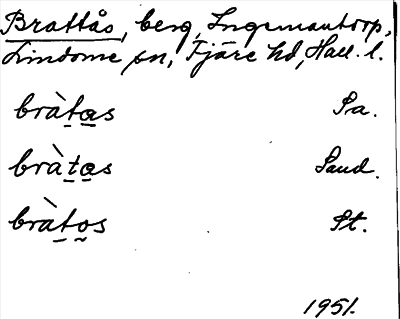 Brattås, berg, Ingemantorp,
Lindome sn, Fjäre hd, Hall. l.
bràt̲a̲s Sa.
bràt̲a̲s Sand.
bràt̲o̰s St.
1951.